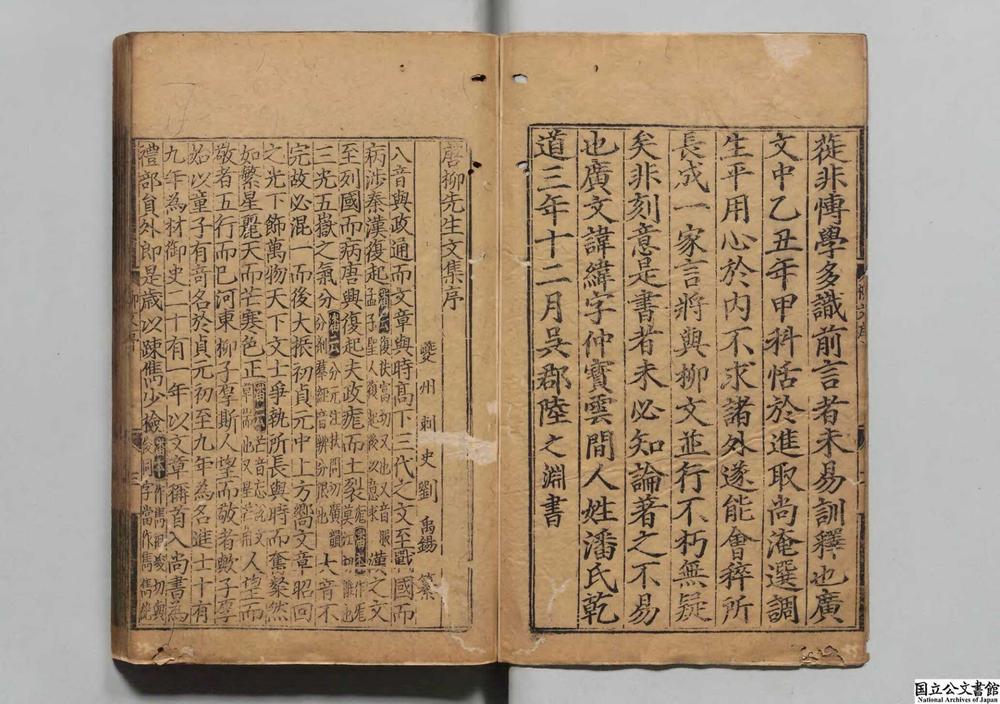 蓰非愽學多識前言者未易訓釋也廣
文中乙丑年甲科恬於進取尚淹選調
生平用心於內不求諸外遂能會稡所
長成一家言將與柳文並行不朽無疑
矣非刻意是書者未必知論著之不易
也廣文諱緯字仲寶雲間人姓潘氏乾
道三年十二月吳郡陸之淵書
唐柳先生文集序
夔州刺史劉禹錫纂
八音與政通而文章與時高下三代之文至戰國而
病涉秦漢復起漢之文
至列國而病唐興復起夫政厖而土裂
三光五嶽之氣分大音不
完故必混一而後大振初貞元中上方嚮文章昭回
之光下飾萬物天下文士爭執所長與時而奮粲然
如繁星麗天而芒寒色正人望而
敬者五行而已河東柳子厚斯人望而敬者歟子厚
始以童子有奇名於貞元初至九年為名進士十有
九年為材御史二十有一年以文章稱首入尚書為
禮部員外郎是歲以踈雋少檢
国立公文書館
National Archives of Japan